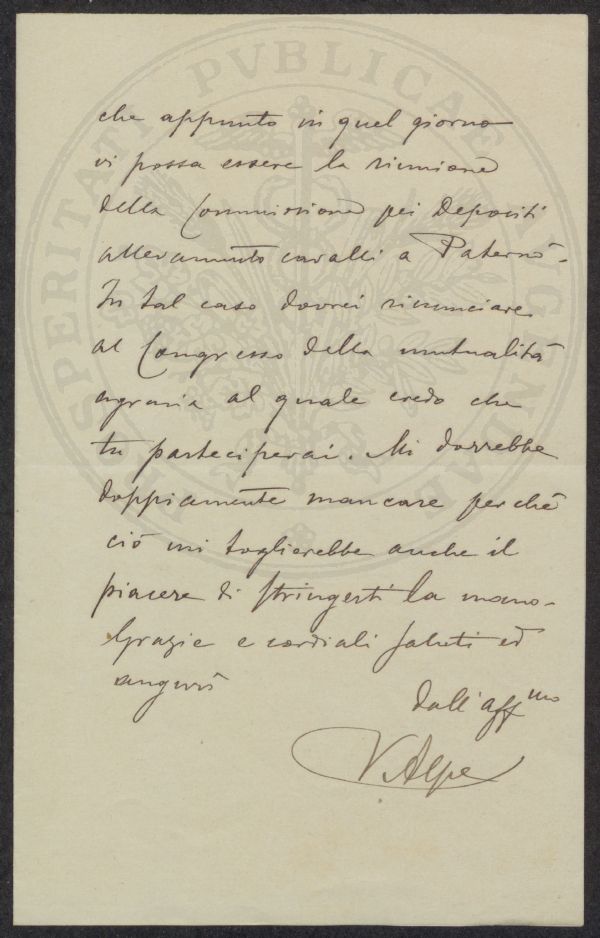 che appunto in quel giorno
vi possa essere la riunione
della Commissione pei Depositi
allevamento cavalli a Paternò.
In tal caso dovrei rinunciare
al Congresso della mutualità
agraria al quale credo che
tu parteciperai. Mi dorrebbe
doppiamente mancare perchè
ciò mi toglierebbe anche il
piacere di stringerti la mano.
Grazie e cordiali saluti ed
auguri
dall'aff.mo
V. Alpe
PROSPERITATI PVBLICAE AVGENDAE